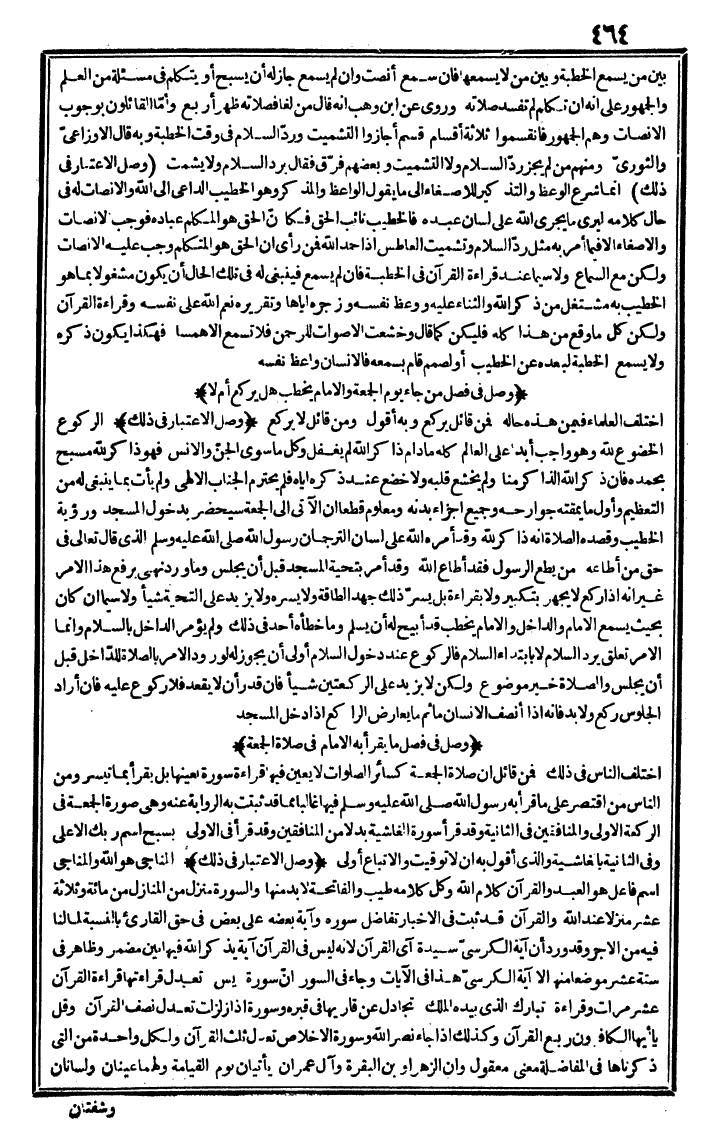 ٤٦٤
بين من يسمع الخطبة وبين من لا يسمعها فان سمع أنصت وان لم يسمع جاز له أن يسبح أو يتكلم فى مسئلة من العلم
والجمهور على انه ان تكلم لم تفسد صلاته وروى عن ابن وهب انه قال من لغا فصلاته ظهر أربع وأمّا القائلون بوجوب
الانصات وهم الجمهور فانقسموا ثلاثة أقسام قسم أجازوا التشميت وردّ السلام فى وقت الخطبة وبه قال الاوزاعىّ
والثورىّ ومنهم من لم يجز ردّ السلام ولا التشميت وبعضهم فرّق فقال يرد السلام ولا يشمت (وصل الاعتبار فى
ذلك) انما شرع الوعظ والتذكير للاصغاء الى ما يقول الواعظ والمذكر وهو الخطيب الداعى الى الله والانصات له فى
حال كلامه ليرى ما يجرى الله على لسان عبده فالخطيب نائب الحق فكانّ الحق هو المتكلم عباده فوجب الانصات
والاصغاء الافيما أمر به مثل ردّ السلام وتشميت العاطس اذا حمد الله فمن رأى ان الحق هو المتكلم وجب عليه الانصات
ولكن مع السماع ولا سيما عند قراءة القرآن فى الخطبة فان لم يسمع فينبغى له فى تلك الحال أن يكون مشغولا بما هو
الخطيب به مشتغل من ذكر الله والثناء عليه ووعظ نفسه وزجره اياها وتقريره نعم الله على نفسه وقراءة القرآن
ولكن كل ما وقع من هذا كله فليكن كما قال وخشعت الاصوات للرحمن فلا تسمع الاهمسا فهكذا يكون ذكره
ولا يسمع الخطبة لبعده عن الخطيب أو لصمم قام بسمعه فالانسان واعظ نفسه
﴿وصل فى فصل من جاء يوم الجمعة والامام يخطب هل يركع أم لا﴾
اختلف العلماء فيمن هذه حاله فمن قائل يركع وبه أقول ومن قائل لا يركع ﴿وصل الاعتبار فى ذلك﴾ الركوع
الخضوع لله وهو واجب أبدا على العالم كله مادام ذاكر الله لم يغفل وكل ما سوى الجنّ والانس فهو ذاكر لله مسبح
بحمده فان ذكر الله الذاكر منا ولم يخشع قلبه ولا خضع عند ذكره اياه فلم يحترم الجناب الالهى ولم يأت بما ينبغى له من
التعظيم وأول ما يمقته جوارحه وجميع اجزاء بدنه ومعلوم قطعا ان الآتى الى الجمعة سيحضر بدخول المسجد ورؤية
الخطيب وقصده الصلاة انه ذاكر لله وقد أمره الله على لسان الترجمان رسول الله صلى الله عليه وسلم الذى قال تعالى فى
حق من أطاعه من يطع الرسول فقد أطاع الله وقد أمر بتحية المسجد قبل أن يجلس وما ورد نهى يرفع هذا الامر
غير انه اذا ركع لا يجهر بتكبير ولا بقراءة بل يسرّ ذلك جهد الطاقة ولا يسره ولا يزيد على التحية شيأ ولا سيما ان كان
بحيث يسمع الامام والداخل والامام يخطب قد أبيح له أن يسلم وما خطأه أحد فى ذلك ولم يؤمر الداخل بالسلام وانما
الامر تعلق برد السلام لا بابتداء السلام فالركوع عند دخول السلام أولى أن يجوز له لورود الامر بالصلاة للدّاخل قبل
أن يجلس والصلاة خير موضوع ولكن لا يزيد على الركعتين شيأ فان قدر أن لا يقعد فلا ركوع عليه فان أراد
الجلوس ركع ولا بد فانه اذا أنصف الانسان ماثم ما يعارض الراكع اذا دخل المسجد
﴿وصل فى فصل ما يقرأ به الامام فى صلاة الجمعة﴾
اختلف الناس فى ذلك فمن قائل ان صلاة الجمعة كسائر الصلوات لا يعين فيها قراءة سورة بعينها بل يقرأ بما تيسر ومن
الناس من اقتصر على ما قرأ به رسول الله صلى الله عليه وسلم فيها غالبا مما قد ثبتت به الرواية عنه وهى صورة الجمعة فى
الركعة الاولى والمنافقين فى الثانية وقد قرأ سورة الغاشية بدلا من المنافقين وقد قرأ فى الاولى بسبح اسم ربك الاعلى
وفى الثانية بالغاشية والذى أقول به ان لا توقيت والاتباع أولى ﴿وصل الاعتبار فى ذلك﴾ المناجى هو الله والمناجى
اسم فاعل هو العبد والقرآن كلام الله وكل كلامه طيب والفاتحة لا بد منها والسورة منزل من المنازل من مائة وثلاثة
عشر منزلا عند الله والقرآن قد ثبت فى الاخبار تفاضل سوره وآية بعضه على بعض فى حق القارئ بالنسبة لما لنا
فيه من الاجر وقد ورد أن آية الكرسىّ سيدة آى القرآن لانه ليس فى القرآن آية يذكر الله فيها بين مضمر وظاهر فى
ستة عشر موضعا منها الا آية الكرسىّ هذا فى الآيات وجاء فى السور انّ سورة يس تعدل قراءتها قراءة القرآن
عشر مرات وقراءة تبارك الذى بيده الملك تجادل عن قاريها فى قبره وسورة اذا زلزلت تعدل نصف القرآن وقل
يا أيها الكافرون ربع القرآن وكذلك اذا جاء نصر الله وسورة الاخلاص تعدل ثلث القرآن ولكل واحدة من التى
ذكرناها فى المفاضلة معنى معقول وان الزهراوين البقرة وآل عمران يأتيان يوم القيامة ولهما عينان ولسانان
وشفتان